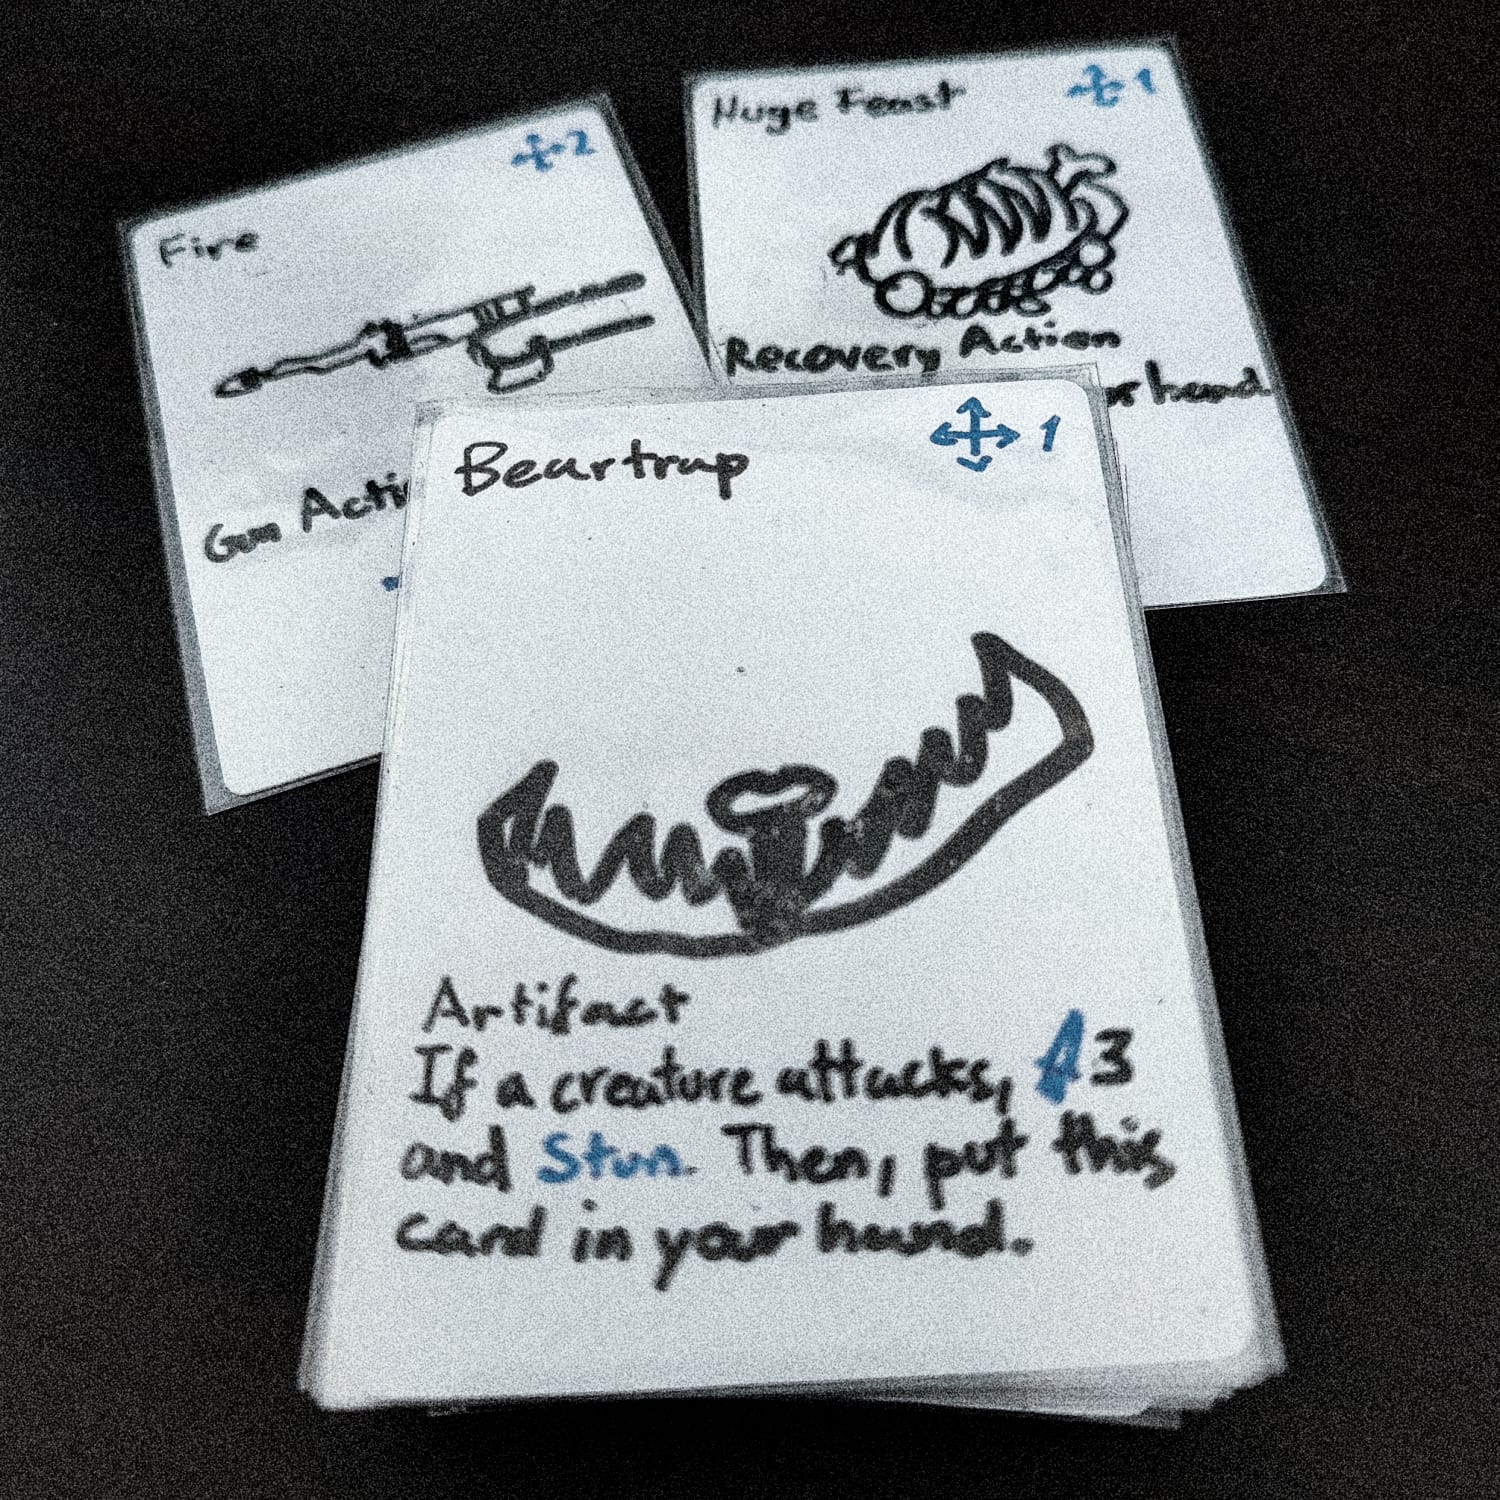 Fire
2
Gun
Huge Feast
1
Recovery Action
hand
Beartrap
1
Artifact
If a creature attacks, 3
and Stun. Then, put this
card in your hand.